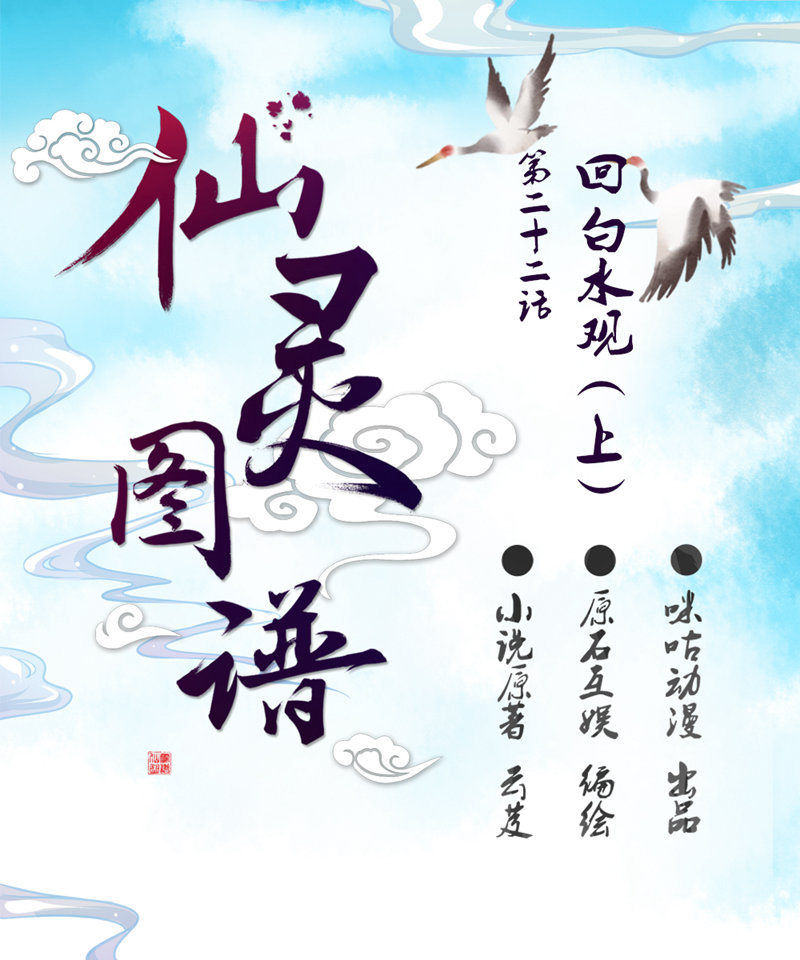 仙灵图谱
第二十二话
回白水观（上）
咪咕动漫 出品
原石互娱 编绘
小说原著 云芨